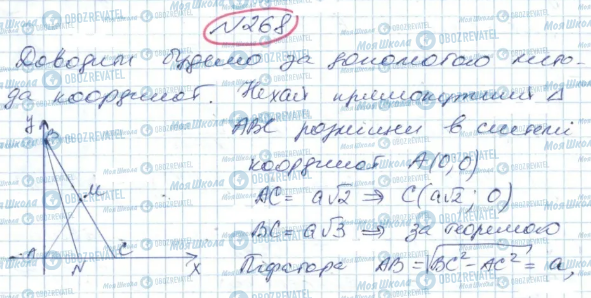 №268
Доводити будемо за допомогою мето-
да координат. Нехай прямокутний Δ
ABC розміщен в системі
координат A(0,0)
AC = a√2 ⇒ C(a√2; 0)
BC = a√3 ⇒ за теоремою
Піфагора AB = √BC² - AC² = a,
y
B
M
A
N
C
x